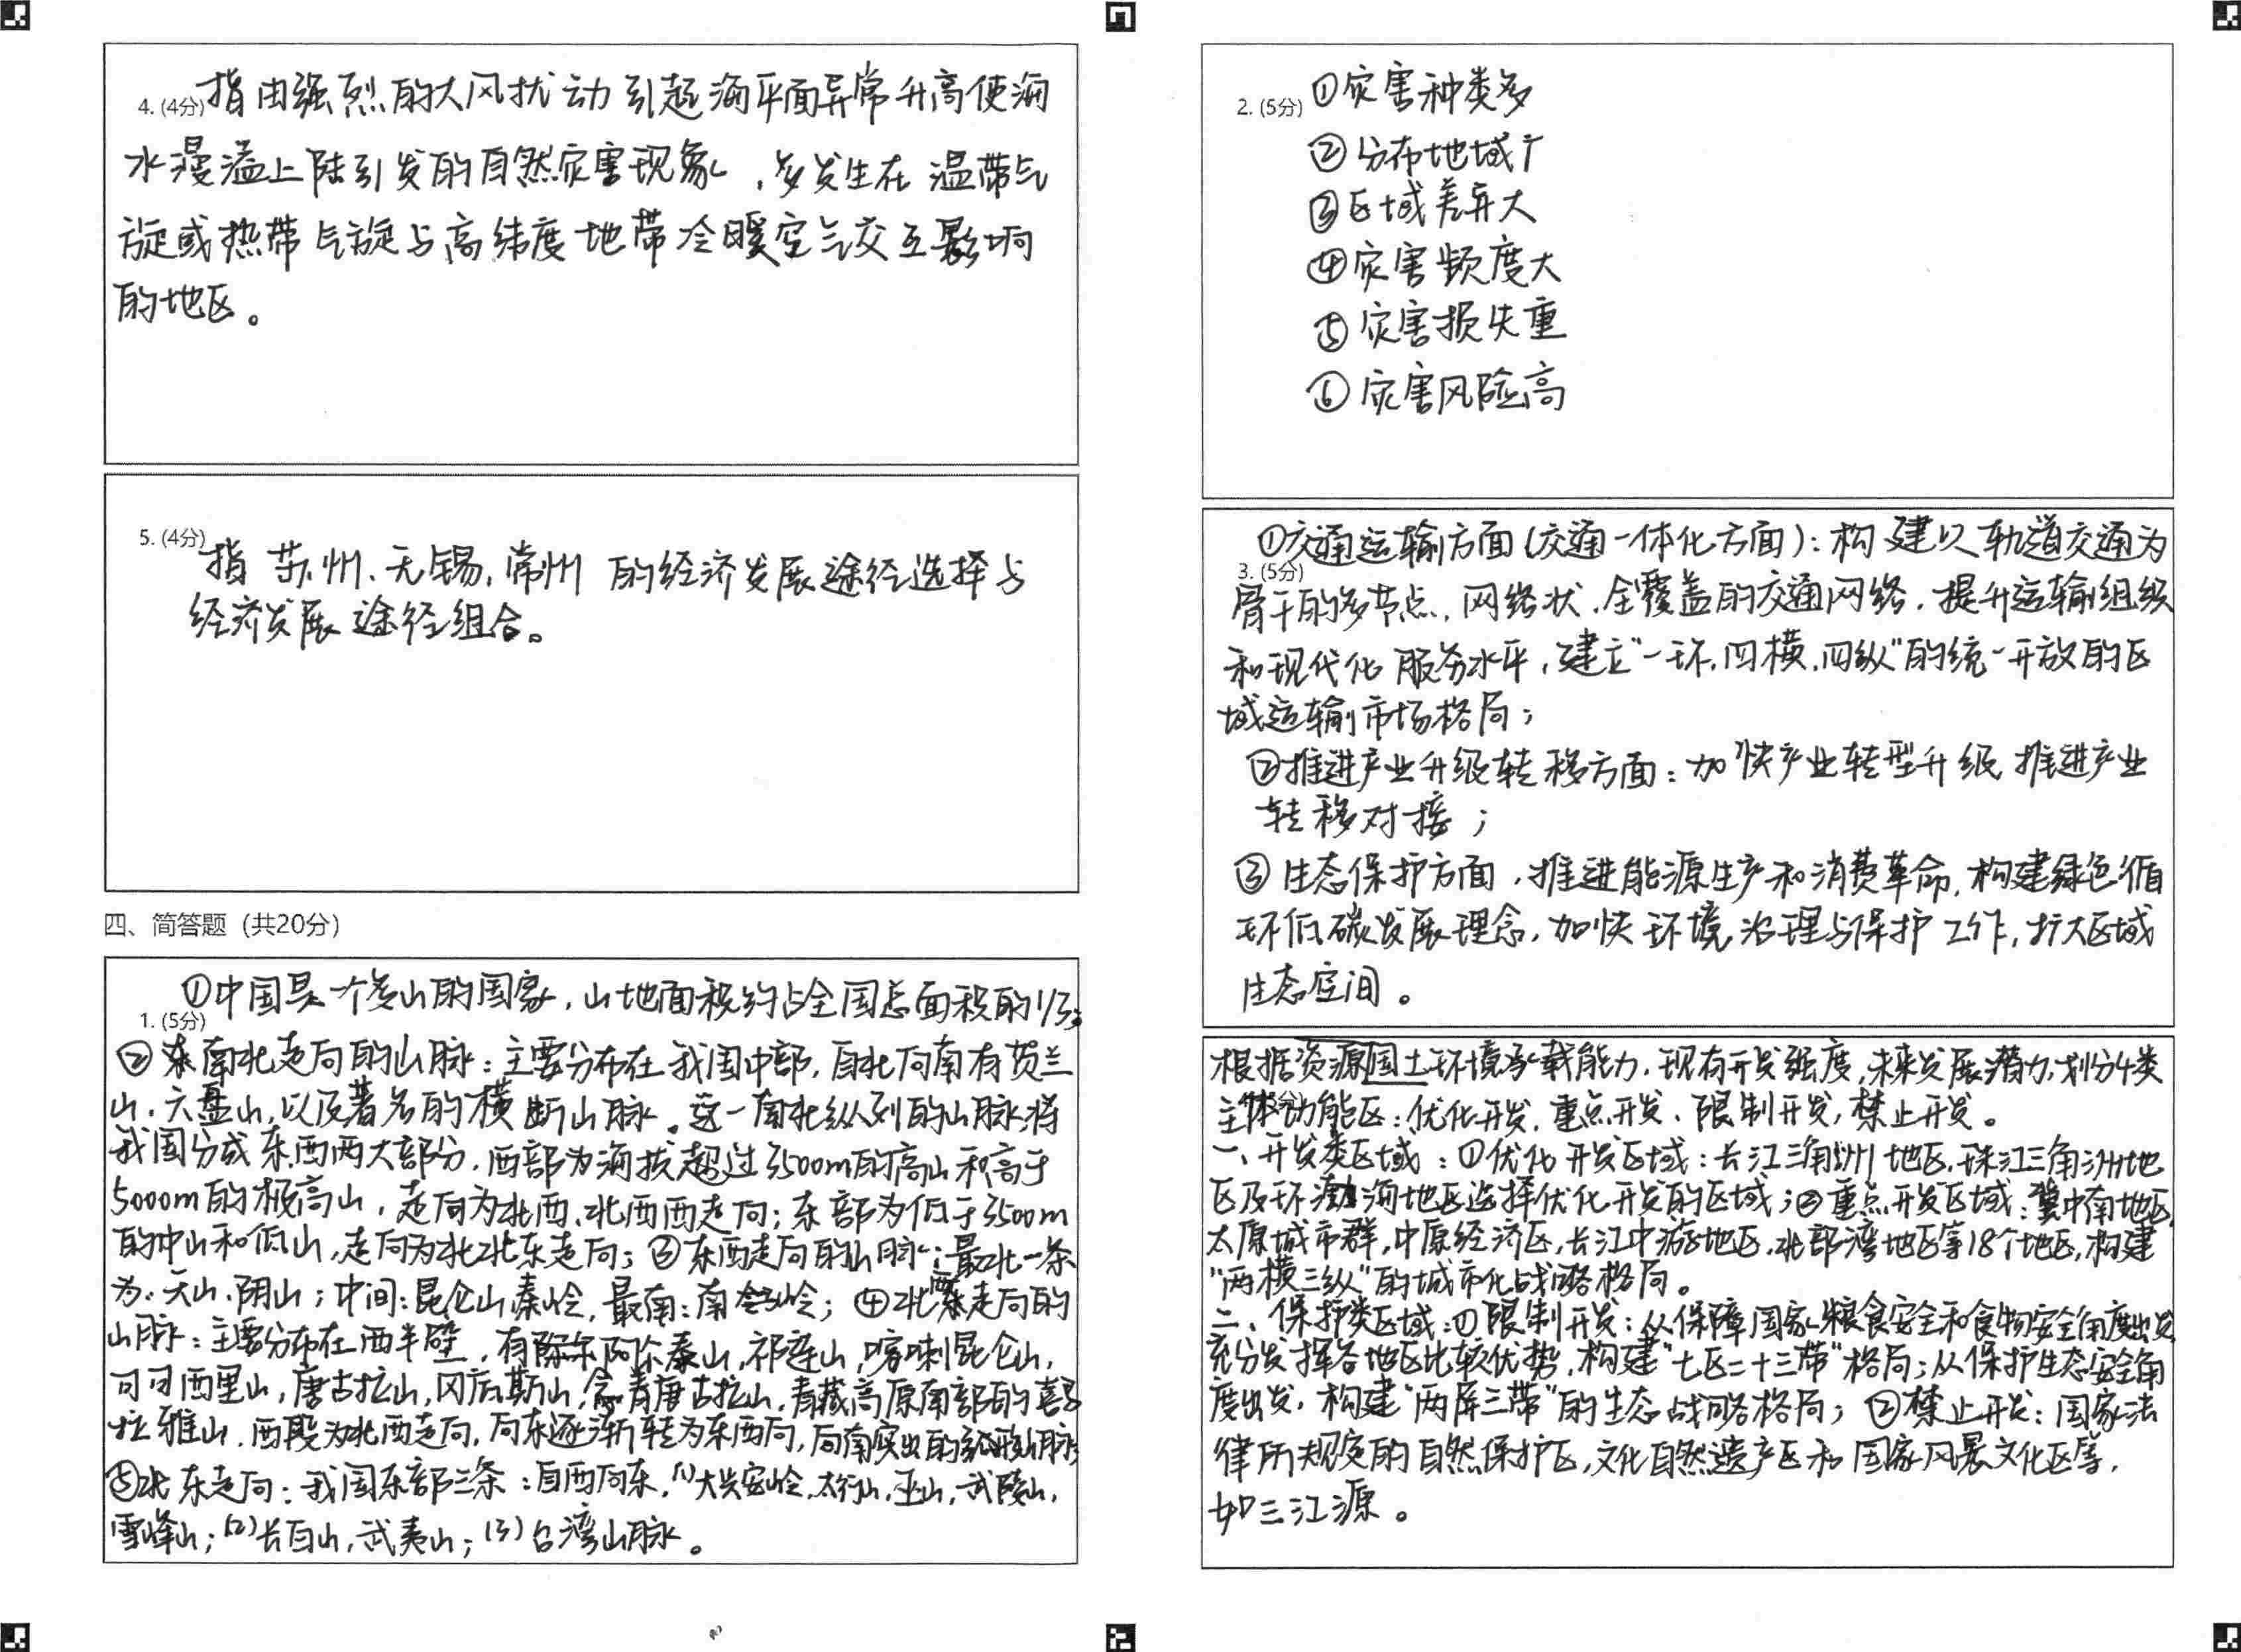 4. (4分) 指由强烈的大风扰动引起海平面异常升高使海
水漫溢上陆引发的自然灾害现象，多发生在温带气
旋或热带气旋与高纬度地带冷暖空气交互影响
的地区。
5. (4分) 指苏州、无锡、常州的经济发展途径选择与
经济发展途径组合。
四、简答题（共20分）
①中国是一个多山的国家，山地面积约占全国总面积的1/3；
1. (5分)
②南北走向的山脉：主要分布在我国中部，自北向南有贺兰
山、六盘山，以及著名的横断山脉。这一南北纵列的山脉将
我国分成东西两大部分，西部为海拔超过3500m的高山和高于
5000m的极高山，走向为北西、北西西走向；东部为低于3500m
的中山和低山，走向为北北东走向；③东西走向的山脉：最北一条
为：天山、阴山；中间：昆仑山秦岭，最南：南岭；④北西走向的
山脉：主要分布在西半壁，有阿尔泰山，祁连山，喀喇昆仑山，
可可西里山，唐古拉山，冈底斯山，念青唐古拉山，青藏高原南部的喜马
拉雅山，西段为北西走向，向东逐渐转为东西向，向南突出的弧形山脉；
⑤北东走向：我国东部三条：自西向东，(1)大兴安岭，太行山，巫山，武陵山，
雪峰山；(2)长白山，武夷山；(3)台湾山脉。
2. (5分) ①灾害种类多
②分布地域广
③区域差异大
④灾害频度大
⑤灾害损失重
⑥灾害风险高
①交通运输方面（交通一体化方面）：构建以轨道交通为
3. (5分)
骨干的多节点，网络状，全覆盖的交通网络，提升运输组织
和现代化服务水平，建立“一环，四横，四纵”的统一开放的区
域运输市场格局；
②推进产业升级转移方面：加快产业转型升级 推进产业
转移对接；
③生态保护方面，推进能源生产和消费革命，构建绿色循
环低碳发展理念，加快环境治理与保护工作，扩大区域
生态空间。
根据资源国土环境承载能力，现有开发强度，未来发展潜力，划分4类
主体功能区：优化开发，重点开发、限制开发，禁止开发。
一、开发类区域：①优化开发区域：长江三角洲地区，珠江三角洲地
区及环渤海地区选择优化开发的区域；②重点开发区域：冀中南地区，
太原城市群，中原经济区，长江中游地区，北部湾地区等18个地区，构建
“两横三纵”的城市化战略格局。
二、保护类区域：①限制开发：从保障国家粮食安全和食物安全角度出发，
充分发挥各地区比较优势，构建“七区二十三带”格局；从保护生态安全角
度出发，构建“两屏三带”的生态战略格局；②禁止开发：国家法
律所规定的自然保护区，文化自然遗产区和国家风景文化区等，
如三江源。